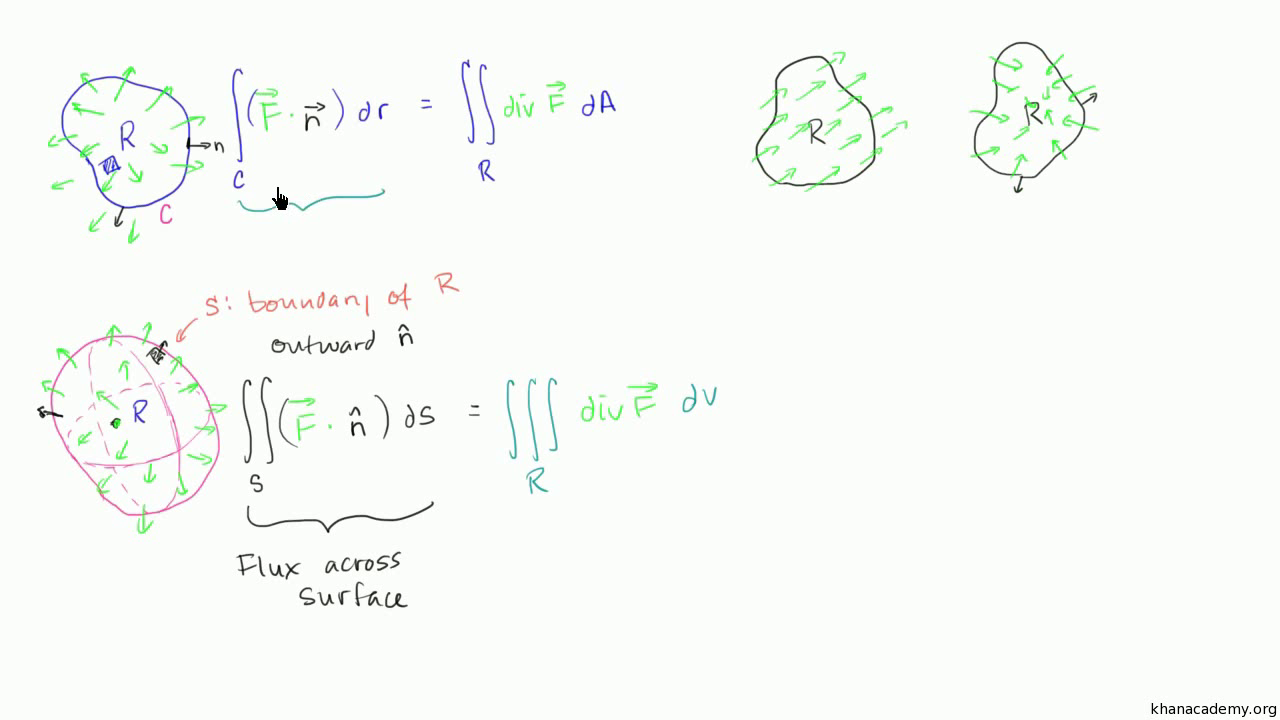 R
n
C
∫ (F⃗ · n⃗) dr = ∬ div F⃗ dA
C R
R
R
S: boundary of R
outward n̂
R
∬ (F⃗ · n̂) dS = ∭ div F⃗ dv
S R
Flux across
surface
khanacademy.org